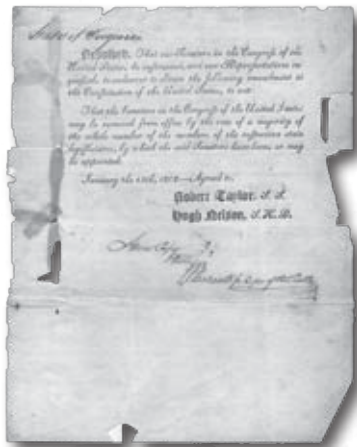 State of Virginia
Resolved, That our Senators in the Congress of the
United States, be instructed, and our Representatives re-
quested, to endeavor to obtain the following amendment to
the Constitution of the United States, to wit:
That the Senators in the Congress of the United States
may be removed from office by the vote of a majority of
the whole number of the members of the respective state
legislatures, by which the said Senators have been, or may
be appointed.
January the 13th, 1808—Agreed to.
Robert Taylor, S. S.
Hugh Nelson, S. H. D.